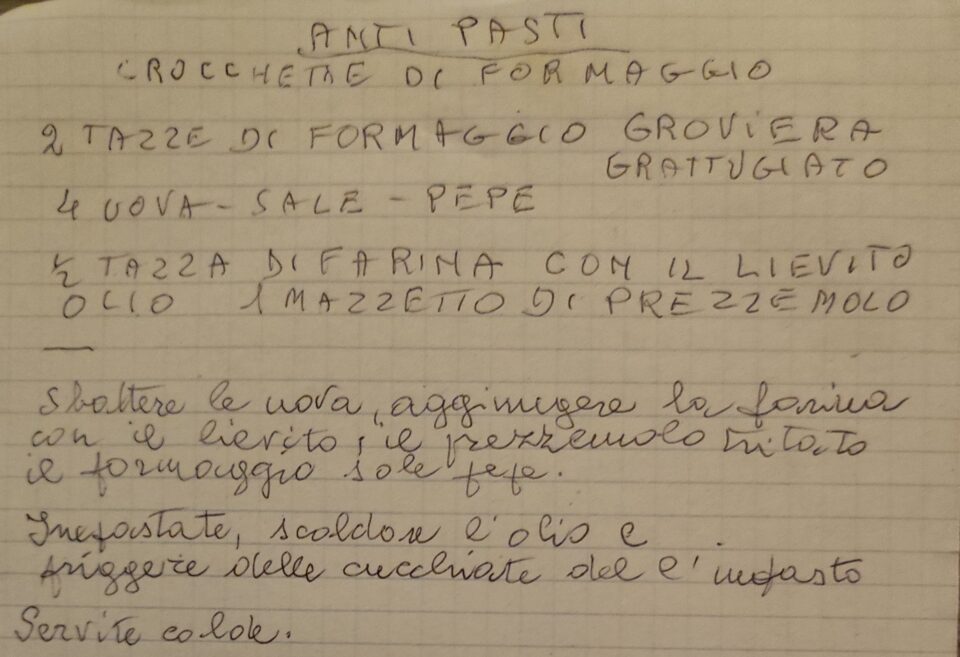 ANTI PASTI
CROCCHETTE DI FORMAGGIO
2 TAZZE DI FORMAGGIO GROVIERA
GRATTUGIATO
4 UOVA - SALE - PEPE
1/2 TAZZA DI FARINA CON IL LIEVITO
OLIO 1 MAZZETTO DI PREZZEMOLO
Sbattere le uova, aggiungere la farina
con il lievito, il prezzemolo tritato
il formaggio sale pepe.
Impastate, scaldare l'olio e
friggere delle cucchiate del l'impasto
Servite calde.